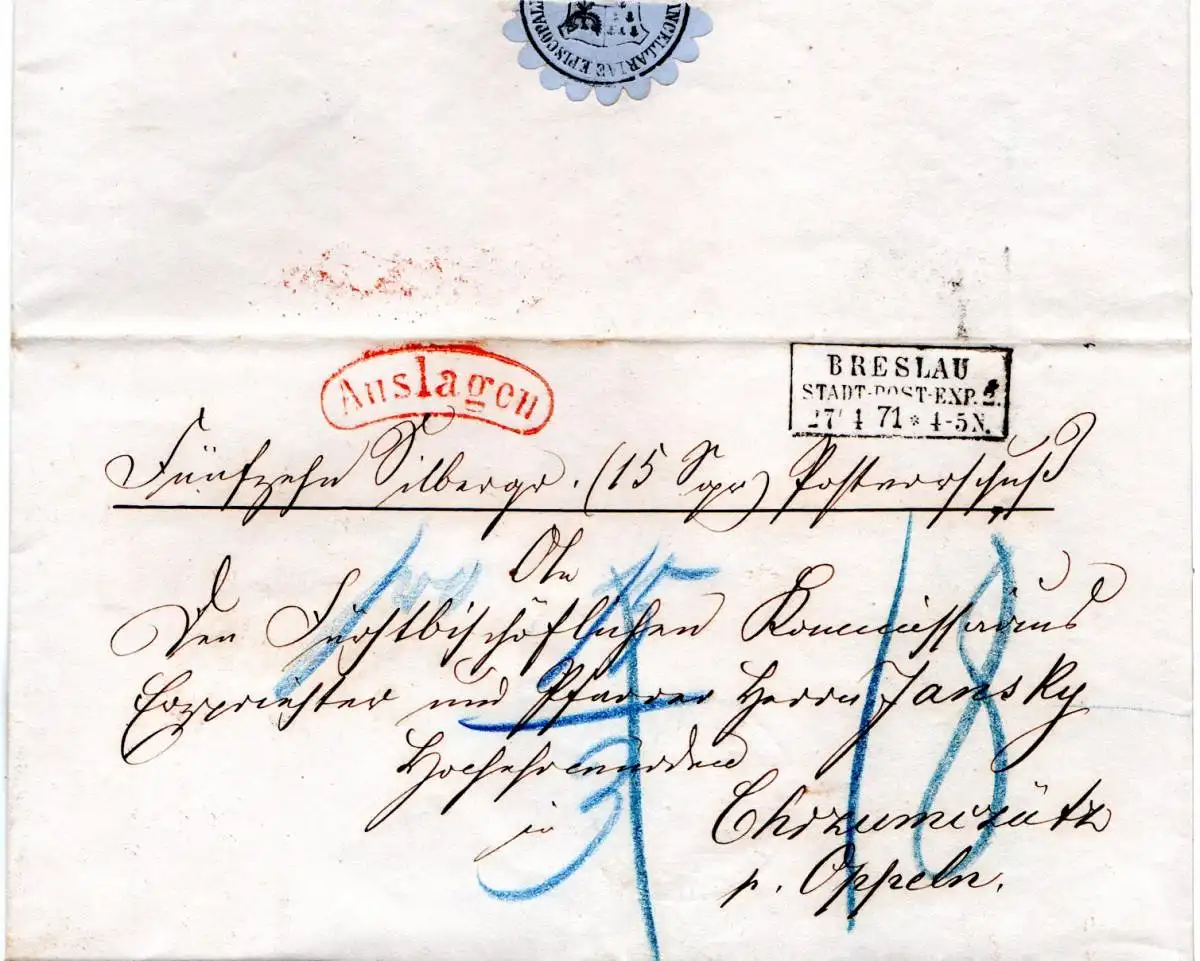 ANCELLARIAE EPISCOPA
Auslagen
BRESLAU
STADT-POST-EXP. 2.
27 4 71 * 4-5N.
Fünfzehn Silbergr. (15 Sgr) Postvorschuß
An
Den Fürstbischöflichen Kommissarius
Erzpriester und Pfarrer Herrn Jansky
Hochehrwürden
in
Chrzumczütz
p. Oppeln.
15
3
18